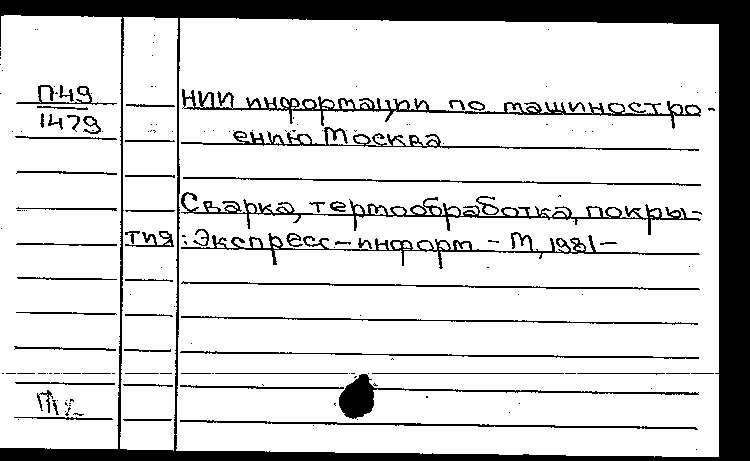 П49
1479
НИИ информации по машиностро-
ению. Москва
Сварка, термообработка, покры-
тия: Экспресс-информ. - М., 1981-